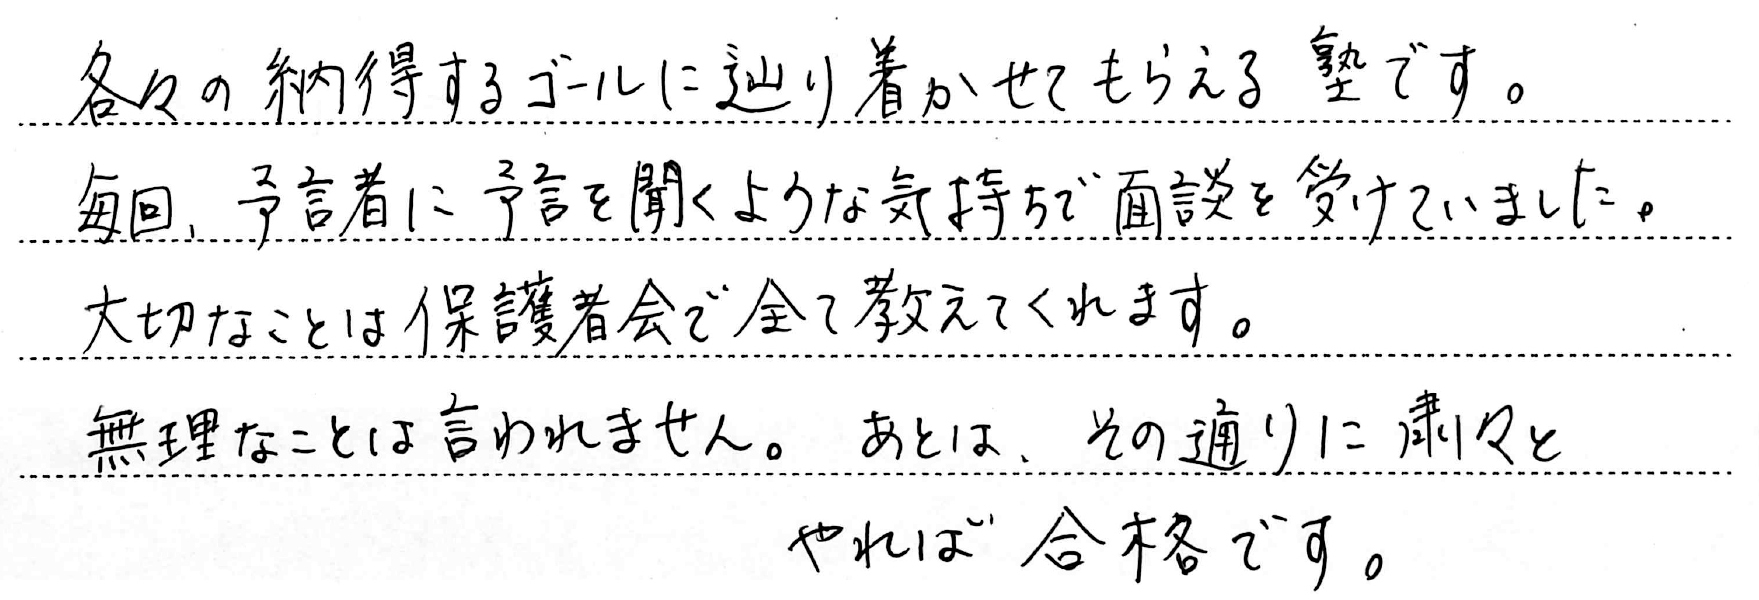 各々の納得するゴールに辿り着かせてもらえる塾です。
毎回、予言者に予言を聞くような気持ちで面談を受けていました。
大切なことは保護者会で全て教えてくれます。
無理なことは言われません。あとは、その通りに粛々と
やれば合格です。